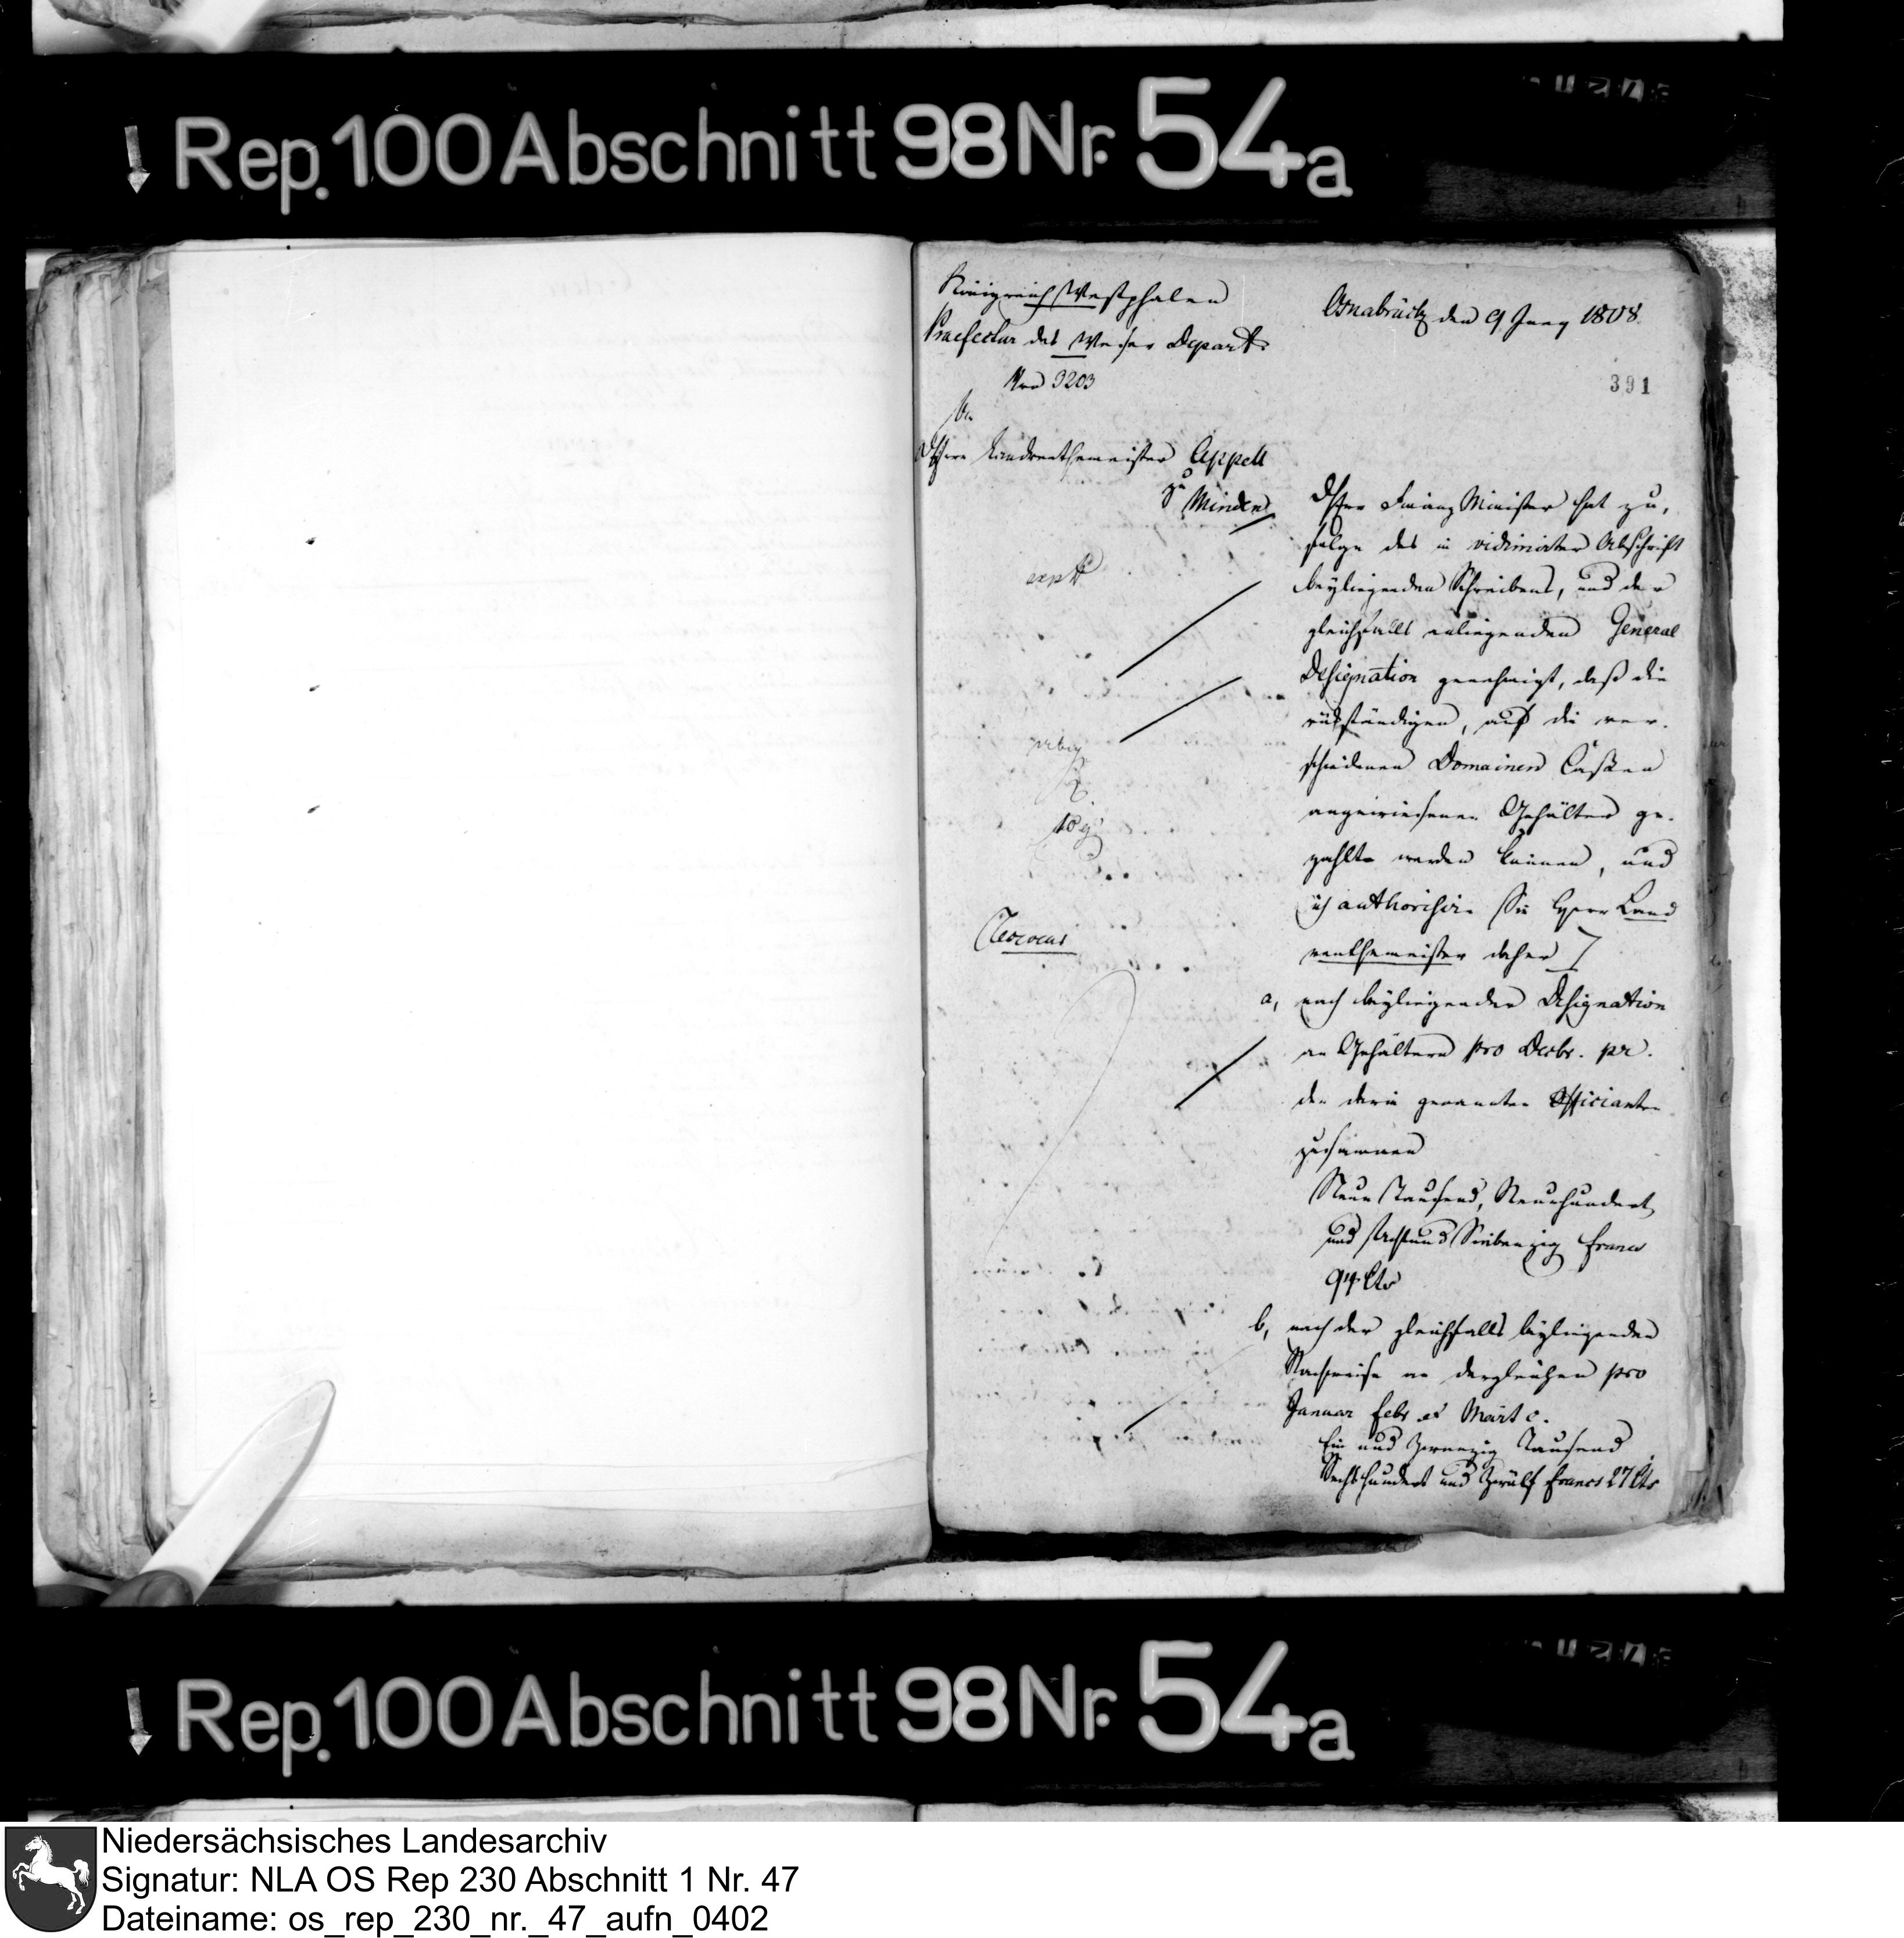 Rep. 100 Abschnitt 98 Nr. 54a
Königreich Westphalen
Praefectur des Weser Depart.
Nro 3203
Osnabrück den 9 Juny 1808
391
An
Herrn Landrenthemeister Appell
zu Minden
Der Finanz Minister hat zu,
folge des in vidimirter Abschrift
beyliegenden Schreibens, und der
gleichfalls anliegenden General
Designation genehmigt, daß die
rükständigen, auf die ver-
schiedenen Domainen Cassen
angewiesenen Gehälter ge-
zahlt werden können, und
ich authorisire Sie Herr Land
renthemeister daher
a, nach beyliegender Designation
an Gehältern pro Decbr. pr.
den darin genannten Officianten
zusammen
Neun Tausend, Neunhundert,
und Acht und Siebenzig Francs
94 Cts
b, nach der gleichfalls beyliegenden
Nachweise an dergleichen pro
Januar Febr et Mart c.
Ein und Zwanzig Tausend
Sechshundert und Zwölf Francs 27 Cts
Rep. 100 Abschnitt 98 Nr. 54a
Niedersächsisches Landesarchiv
Signatur: NLA OS Rep 230 Abschnitt 1 Nr. 47
Dateiname: os_rep_230_nr._47_aufn_0402